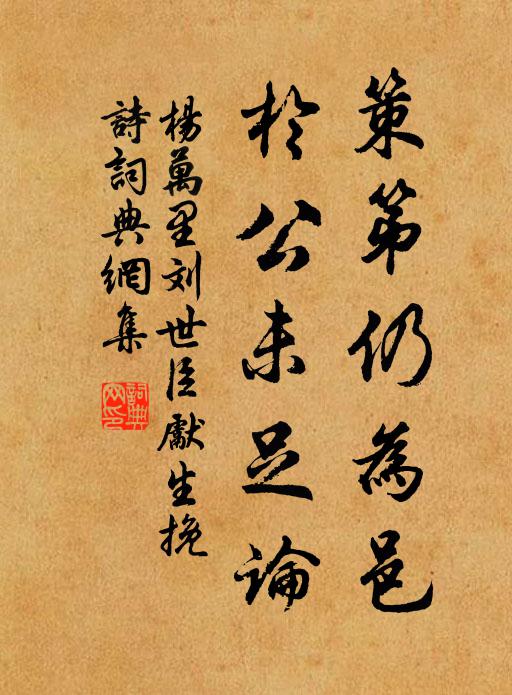 策第仍為邑
於公未足論
楊萬里刘世臣獻生挽
詩詞典網集
詩詞典网印